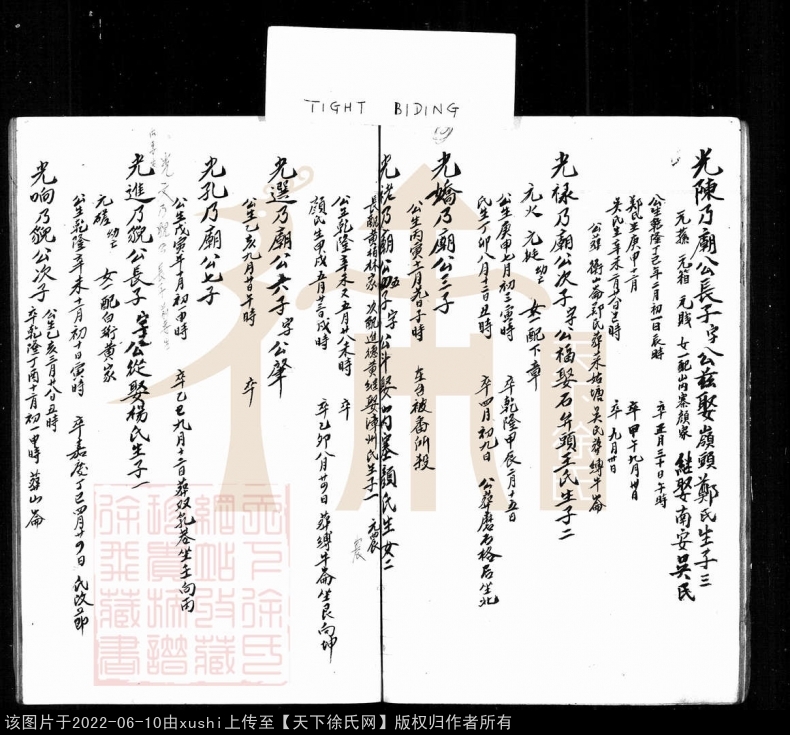 TIGHT BIDING
光陳乃廟公長子字公茲娶嶺頭鄭氏生子三
元蓀 元箱 元賤 女一配山內寨顏家 継娶南安吳氏
公生乾隆丁巳年二月初一日辰時 卒正月三十日午時
鄭氏生庚申十一月 卒甲午九月卅日
吳氏生辛未一月六日巳時 卒九月四日
公葬 崙鄭氏葬禾姑墘吳氏葬縛牛崙
光祿乃廟公次子字公福娶石弁頭王氏生子二
元火 元挺 幼亡 女一配下章
公生庚申七月初三寅時 卒乾隆甲辰二月十五日
氏生丁卯八月十二日丑時 卒四月初九日 公葬磨石格居坐北
光嬌乃廟公三子
公生丙寅十二月 日子時 在台被番所殺
光 乃廟公五子字公斗娶山內寨顏氏生女二
長配黃柏林家 次配進德黃継娶漳州氏生子一 元宸
公生乾隆辛未又五月廿八未時 卒
顏氏生甲戌五月廿 日戌時 卒乙卯八月廿四日 葬縛牛崙坐艮向坤
光選乃廟公六子字公肇
公生乙亥九月 日午時 卒
光孔乃廟公七子
公生戊寅年十月初十申時 卒乙丑九月十二日葬双乳巷坐壬向丙
光進乃貌公長子字公從娶楊氏生子一
元磋 幼亡 女一配白珩黃家
公生乾隆辛未十一月初十日寅時 卒嘉慶丁巳四月廿四日 氏改節
光响乃貌公次子 公生乙亥二月廿八日丑時
卒乾隆丁酉十二月初一甲時 葬山崙
天下徐氏網站收藏珍貴族譜徐飛藏書
该图片于2022-06-10由xushi上传至【天下徐氏网】版权归作者所有